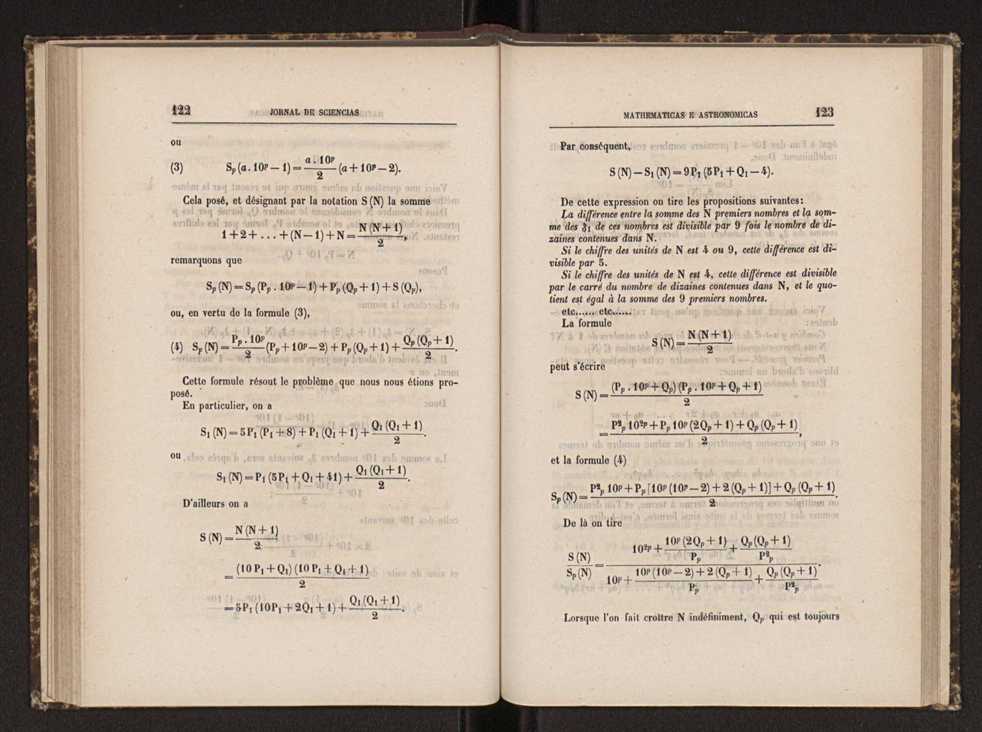 122 JORNAL DE SCIENCIAS
ou
(3) Sₚ(a.10ᵖ−1)=a.10ᵖ/2 (a+10ᵖ−2).
Cela posé, et désignant par la notation S(N) la somme
1+2+...+(N−1)+N=N(N+1)/2,
remarquons que
Sₚ(N)=Sₚ(Pₚ.10ᵖ−1)+Pₚ(Qₚ+1)+S(Qₚ),
ou, en vertu de la formule (3),
(4) Sₚ(N)=Pₚ.10ᵖ/2 (Pₚ+10ᵖ−2)+Pₚ(Qₚ+1)+Qₚ(Qₚ+1)/2.
Cette formule résout le problème que nous nous étions pro-
posé.
En particulier, on a
S₁(N)=5P₁(P₁+8)+P₁(Q₁+1)+Q₁(Q₁+1)/2.
ou
S₁(N)=P₁(5P₁+Q₁+41)+Q₁(Q₁+1)/2.
D'ailleurs on a
S(N)=N(N+1)/2
=(10P₁+Q₁)(10P₁+Q₁+1)/2
=5P₁(10P₁+2Q₁+1)+Q₁(Q₁+1)/2.
MATHEMATICAS E ASTRONOMICAS 123
Par conséquent,
S(N)−S₁(N)=9P₁(5P₁+Q₁−4).
De cette expression on tire les propositions suivantes:
La différence entre la somme des N premiers nombres et la som-
me des ξ₁ de ces nombres est divisible par 9 fois le nombre de di-
zaines contenues dans N.
Si le chiffre des unités de N est 4 ou 9, cette différence est di-
visible par 5.
Si le chiffre des unités de N est 4, cette différence est divisible
par le carré du nombre de dizaines contenues dans N, et le quo-
tient est égal à la somme des 9 premiers nombres.
etc...... etc......
La formule
S(N)=N(N+1)/2
peut s'écrire
S(N)=(Pₚ.10ᵖ+Qₚ)(Pₚ.10ᵖ+Qₚ+1)/2
=P²ₚ10²ᵖ+Pₚ10ᵖ(2Qₚ+1)+Qₚ(Qₚ+1)/2,
et la formule (4)
Sₚ(N)=P²ₚ10ᵖ+Pₚ[10ᵖ(10ᵖ−2)+2(Qₚ+1)]+Qₚ(Qₚ+1)/2.
De là on tire
S(N)/Sₚ(N)=(10²ᵖ+10ᵖ(2Qₚ+1)/Pₚ+Qₚ(Qₚ+1)/P²ₚ)/(10ᵖ+10ᵖ(10ᵖ−2)+2(Qₚ+1)/Pₚ+Qₚ(Qₚ+1)/P²ₚ).
Lorsque l'on fait croître N indéfiniment, Qₚ qui est toujours